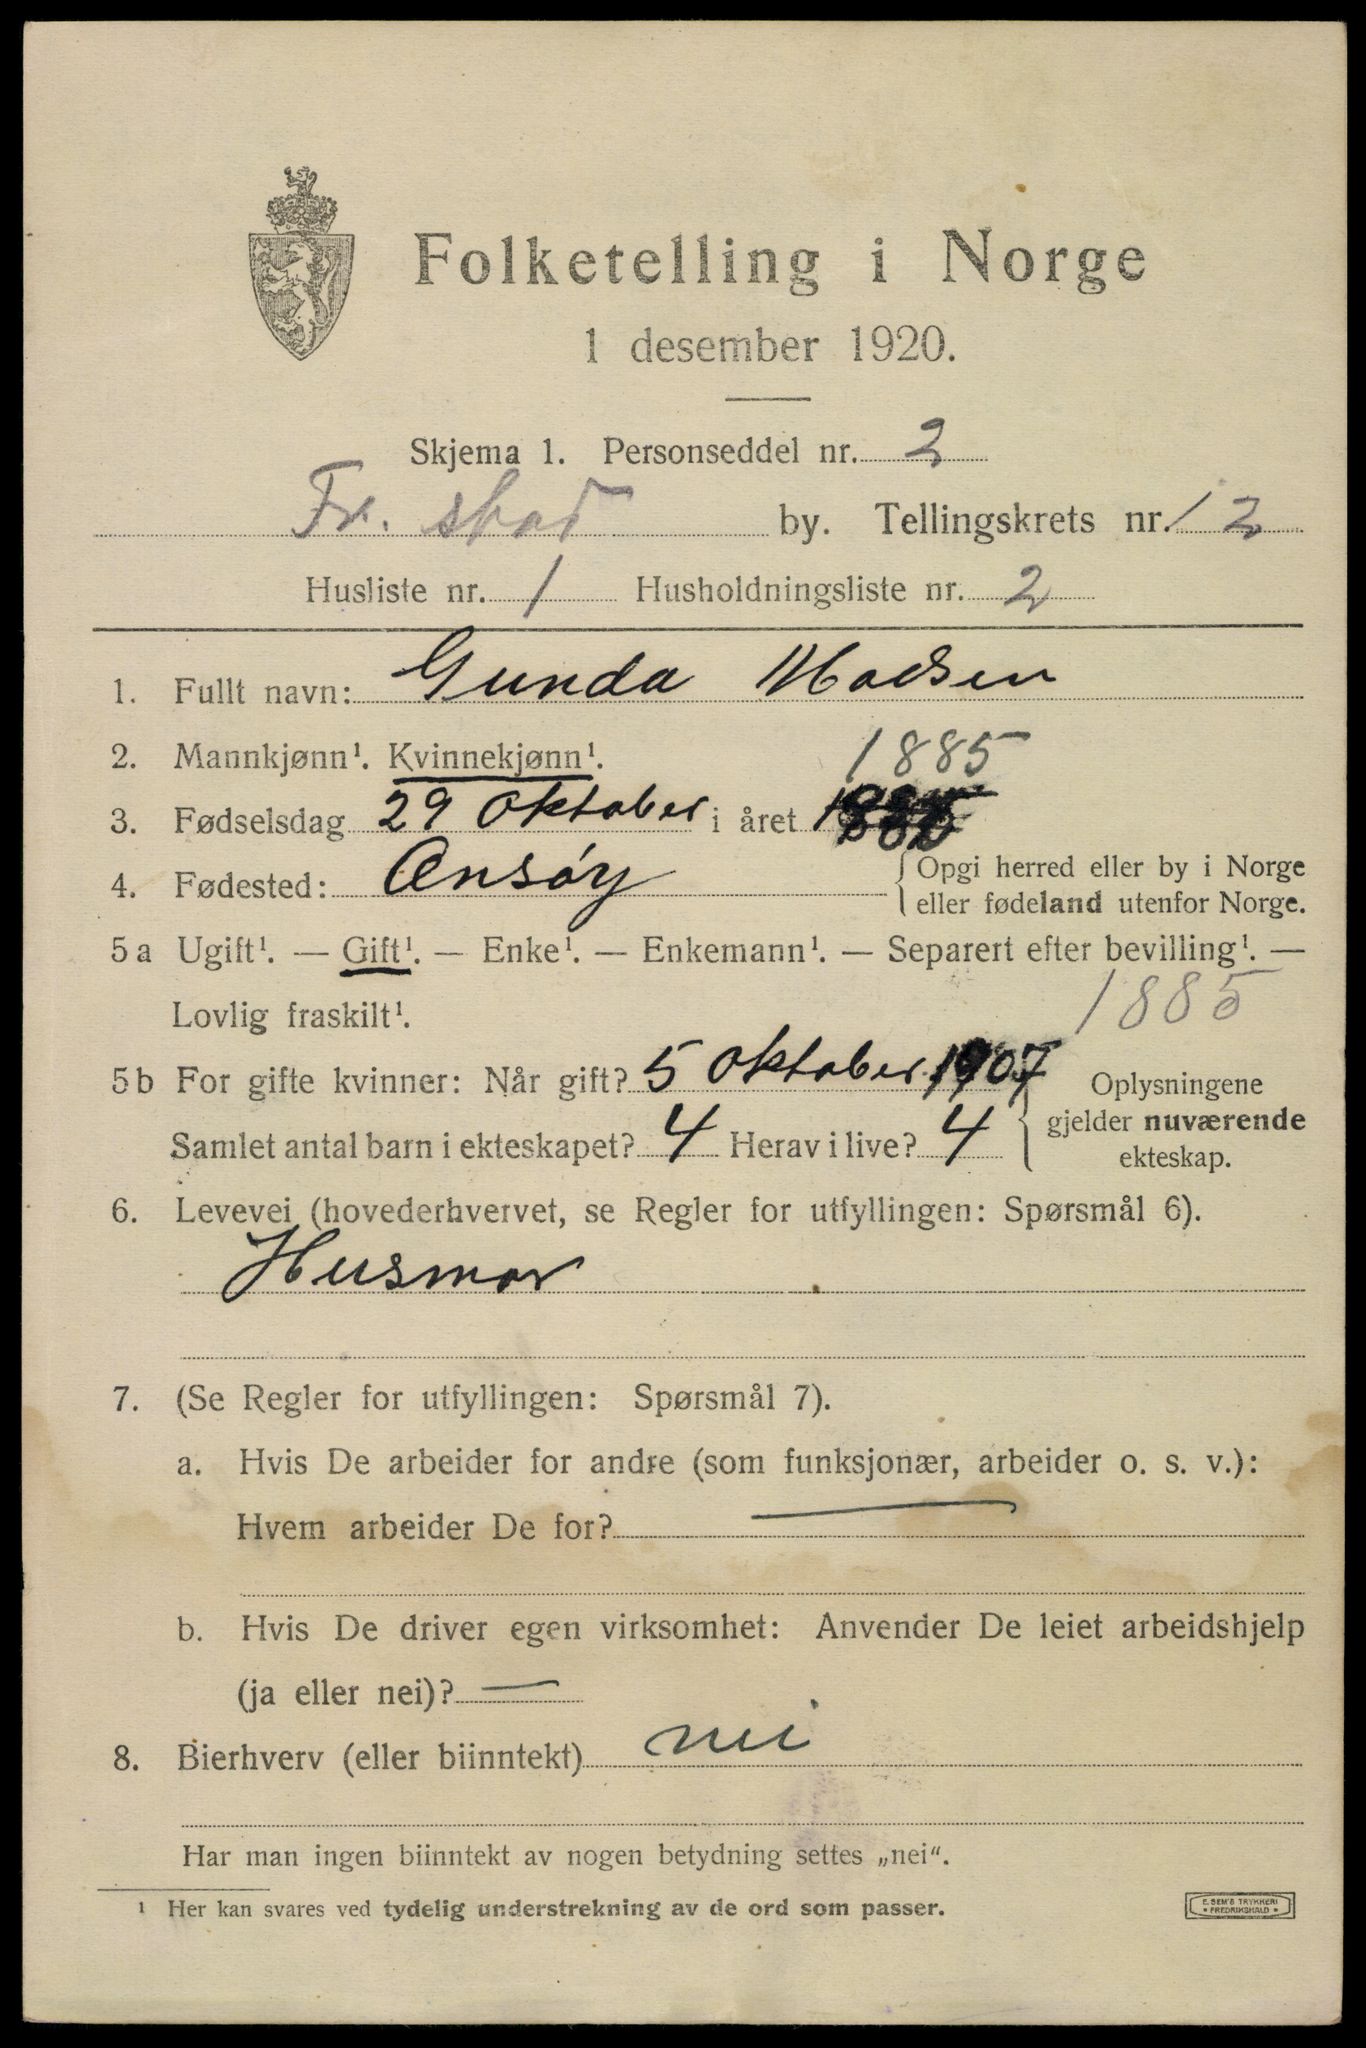 Folketelling i Norge
1 desember 1920.
Skjema 1. Personseddel nr. 2
Fr. stad by. Tellingskrets nr. 12
Husliste nr. 1 Husholdningsliste nr. 2
1. Fullt navn: Gunda Madsen
2. Mannkjønn¹. Kvinnekjønn¹. 1885
3. Fødselsdag 29 Oktober i året 1885
4. Fødested: Onsøy { Opgi herred eller by i Norge
eller fødeland utenfor Norge.
5 a Ugift¹. — Gift¹. — Enke¹. — Enkemann¹. — Separert efter bevilling¹. —
Lovlig fraskilt¹. 1885
5 b For gifte kvinner: Når gift? 5 Oktober 1907 { Oplysningene
gjelder nuværende
Samlet antal barn i ekteskapet? 4 Herav i live? 4
ekteskap.
6. Levevei (hovederhvervet, se Regler for utfyllingen: Spørsmål 6).
Husmor
7. (Se Regler for utfyllingen: Spørsmål 7).
a. Hvis De arbeider for andre (som funksjonær, arbeider o. s. v.):
Hvem arbeider De for? —
b. Hvis De driver egen virksomhet: Anvender De leiet arbeidshjelp
(ja eller nei)? —
8. Bierhverv (eller biinntekt) nei
Har man ingen biinntekt av nogen betydning settes „nei“.
¹ Her kan svares ved tydelig understrekning av de ord som passer.
E. SEM'S TRYKKERI
• FREDRIKSHALD •